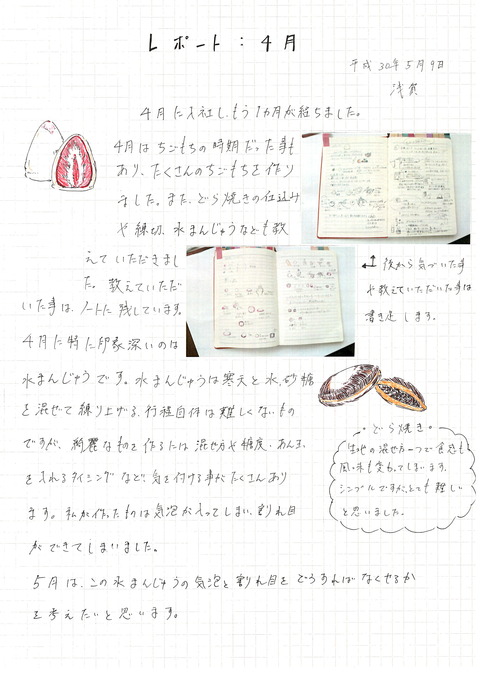 レポート：4月
平成30年5月9日
浅賀
4月に入社し、もう1カ月が経ちました。
4月はちごもちの時期だった事も
あり、たくさんのちごもちを作り
ました。また、どら焼きの仕込み
や練切、水まんじゅうなども教
えていただきまし
た。教えていただ
いた事は、ノートに残しています。
↑← 後から気づいた事
や教えていただいた事は
書き足します。
4月に特に印象深いのは
水まんじゅうです。水まんじゅうは寒天と水、砂糖
を混ぜて練り上げる、行程自体は難しくないもの
ですが、綺麗なものを作るには混ぜ方や糖度、あん玉
を入れるタイミングなど、気を付ける事がたくさんあり
ます。私が作ったものは気泡が入ってしまい、割れ目
ができてしまいました。
・どら焼き・
生地の混ぜ方一つで食感も
風味も変わってしまいます。
シンプルですが、とても難しい
と思いました。
5月は、この水まんじゅうの気泡と割れ目をどうすればなくせるか
を考えたいと思います。